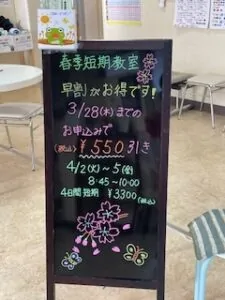 春季短期教室
早割がお得です!
3/28(木)までの
お申込みで
(税込)¥550引き
4/2(火)～5(金)
8:45～10:00
4日間短期 ¥3300(税込)